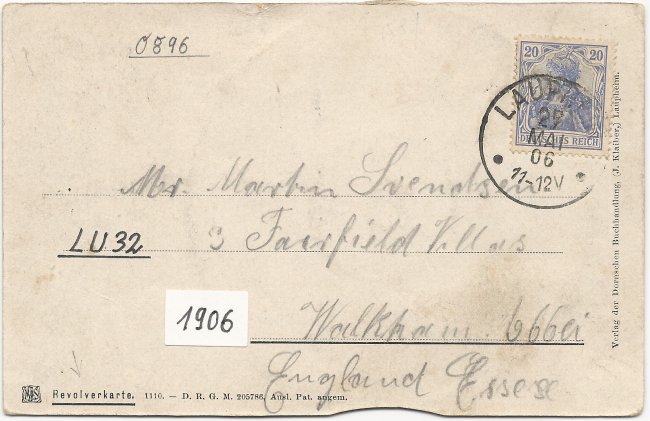 0896
20 20
DEUTSCHES REICH
LAUPH
29
MAI
06
11-12V
Mr. Martin Svendsen
3 Fairfield Villas
LU32
1906
England Essex
Revolverkarte. 1110. — D. R. G. M. 205786, Ausl. Pat. angem.
Verlag der Dornschen Buchhandlung, (J. Klaiber,) Laupheim.